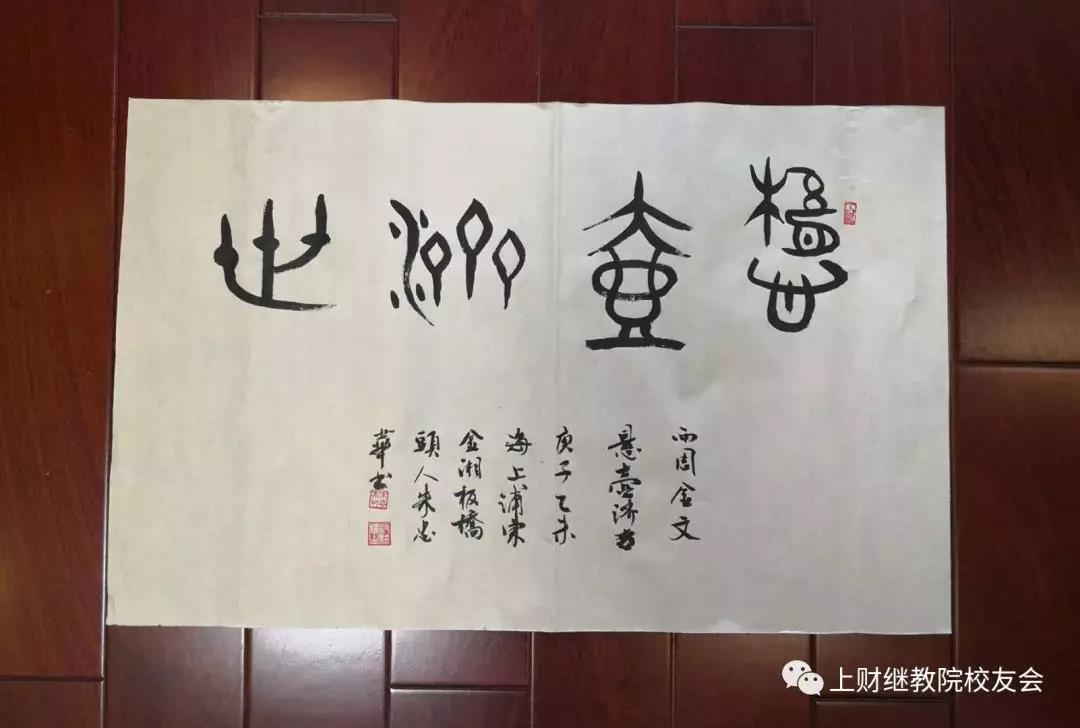 懸壺濟世
西周金文
悬壺济世
庚子乙未
海上浦东
金湘板橋
頭人朱忠
華书
上财继教院校友会